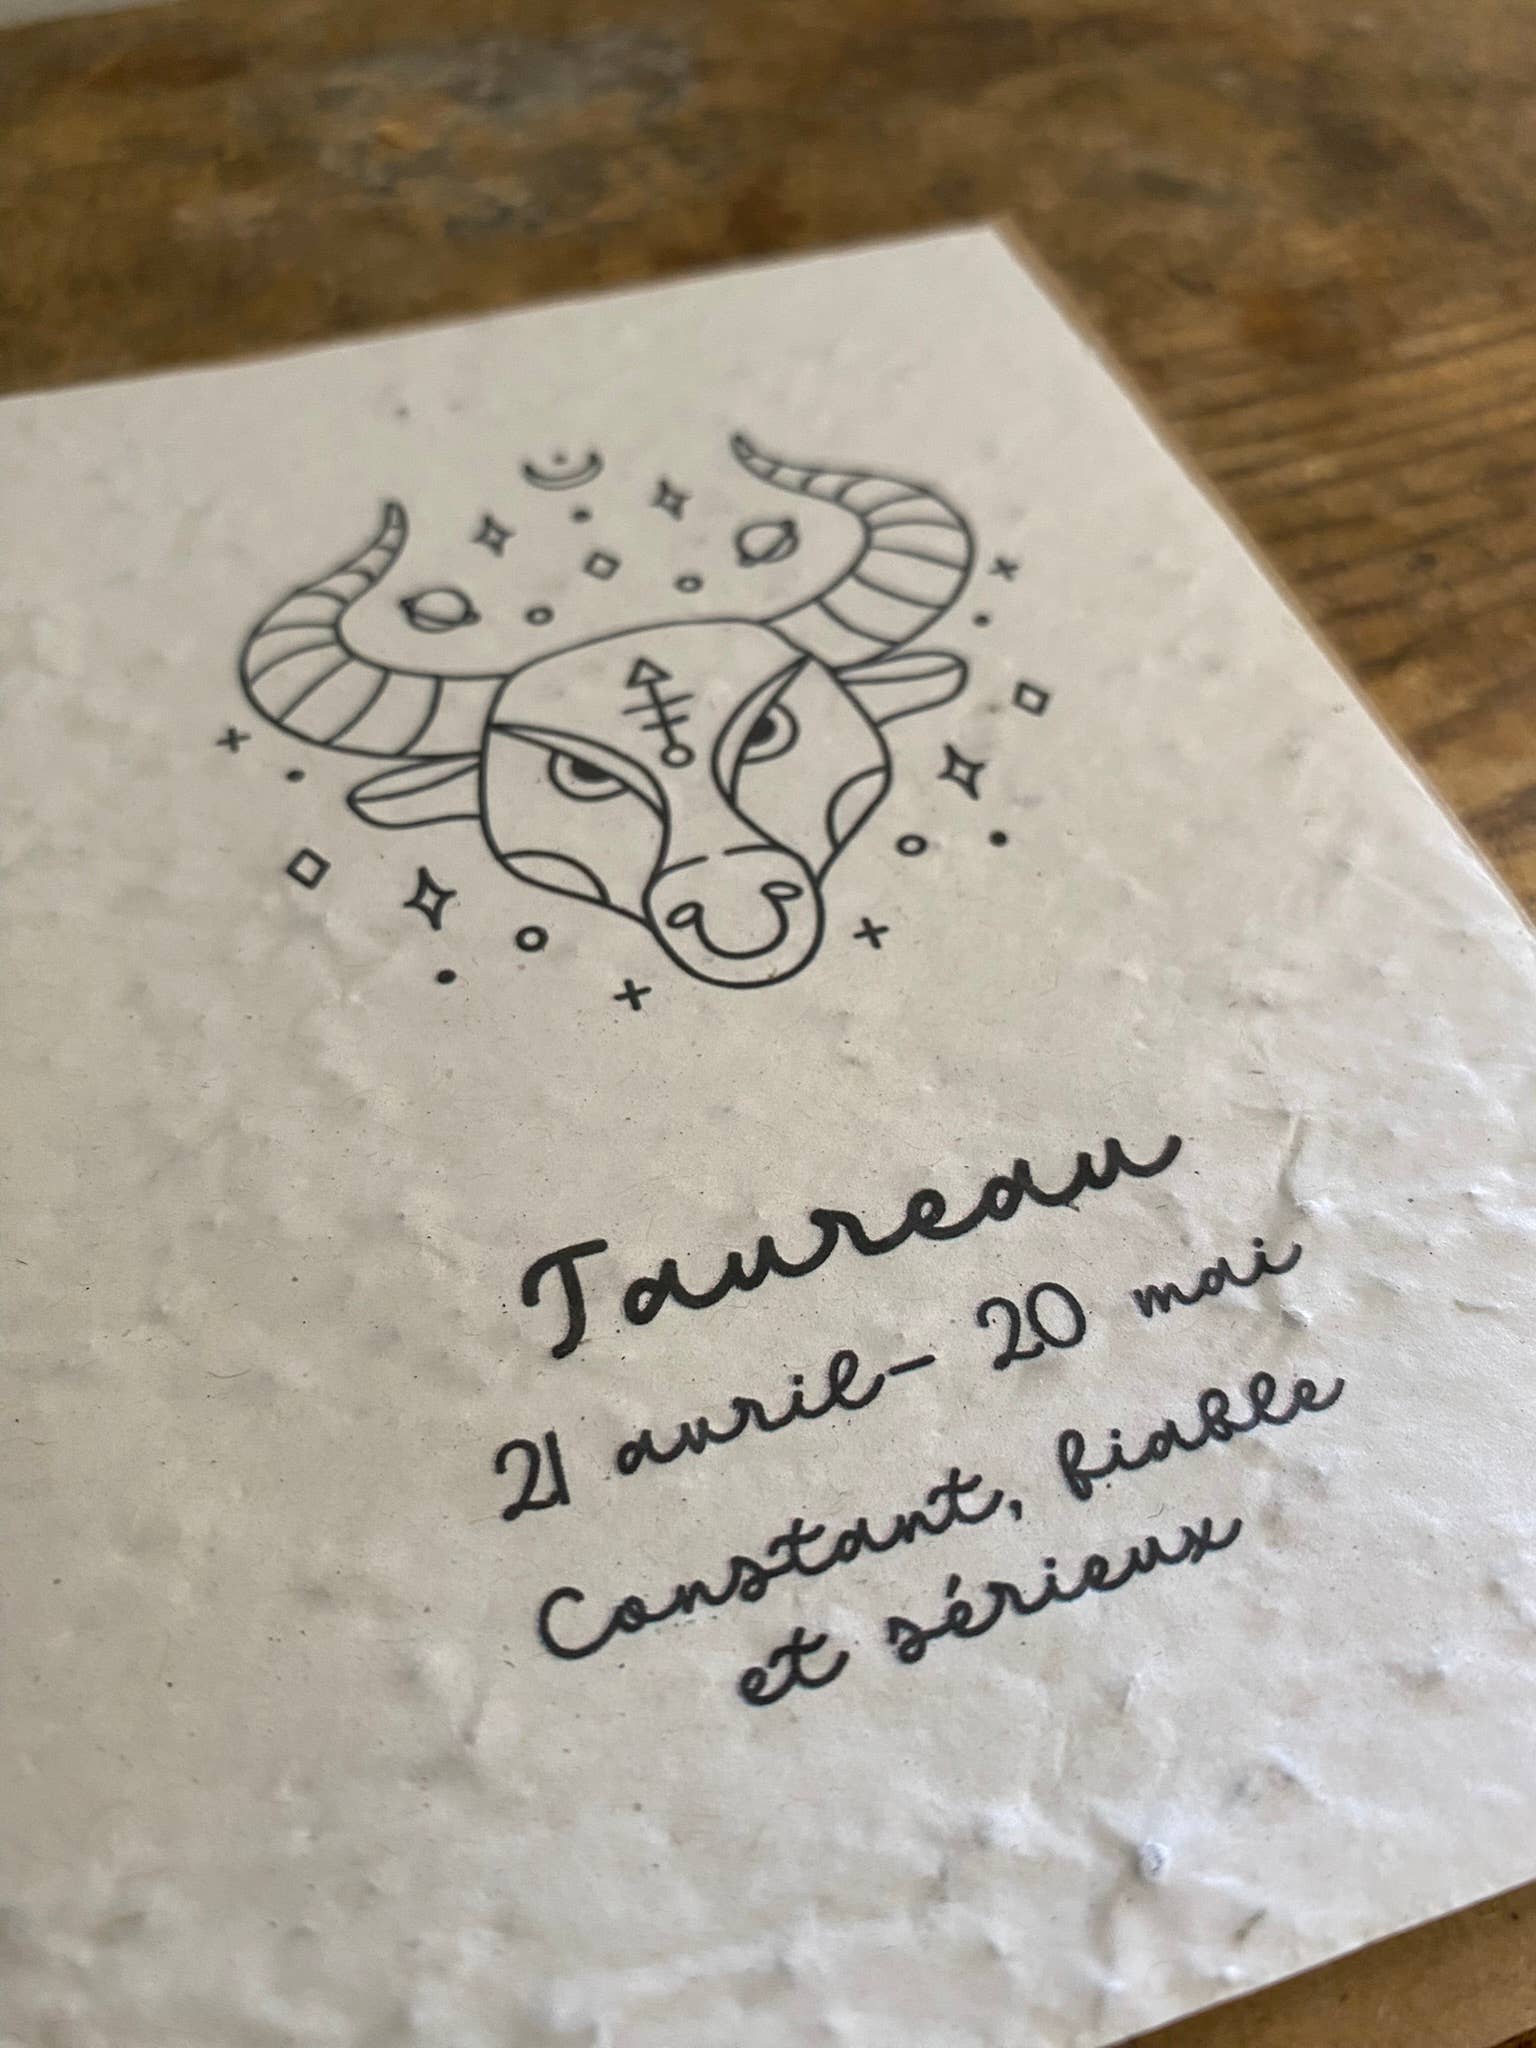 Taureau
21 avril- 20 mai
Constant, fiable
et sérieux